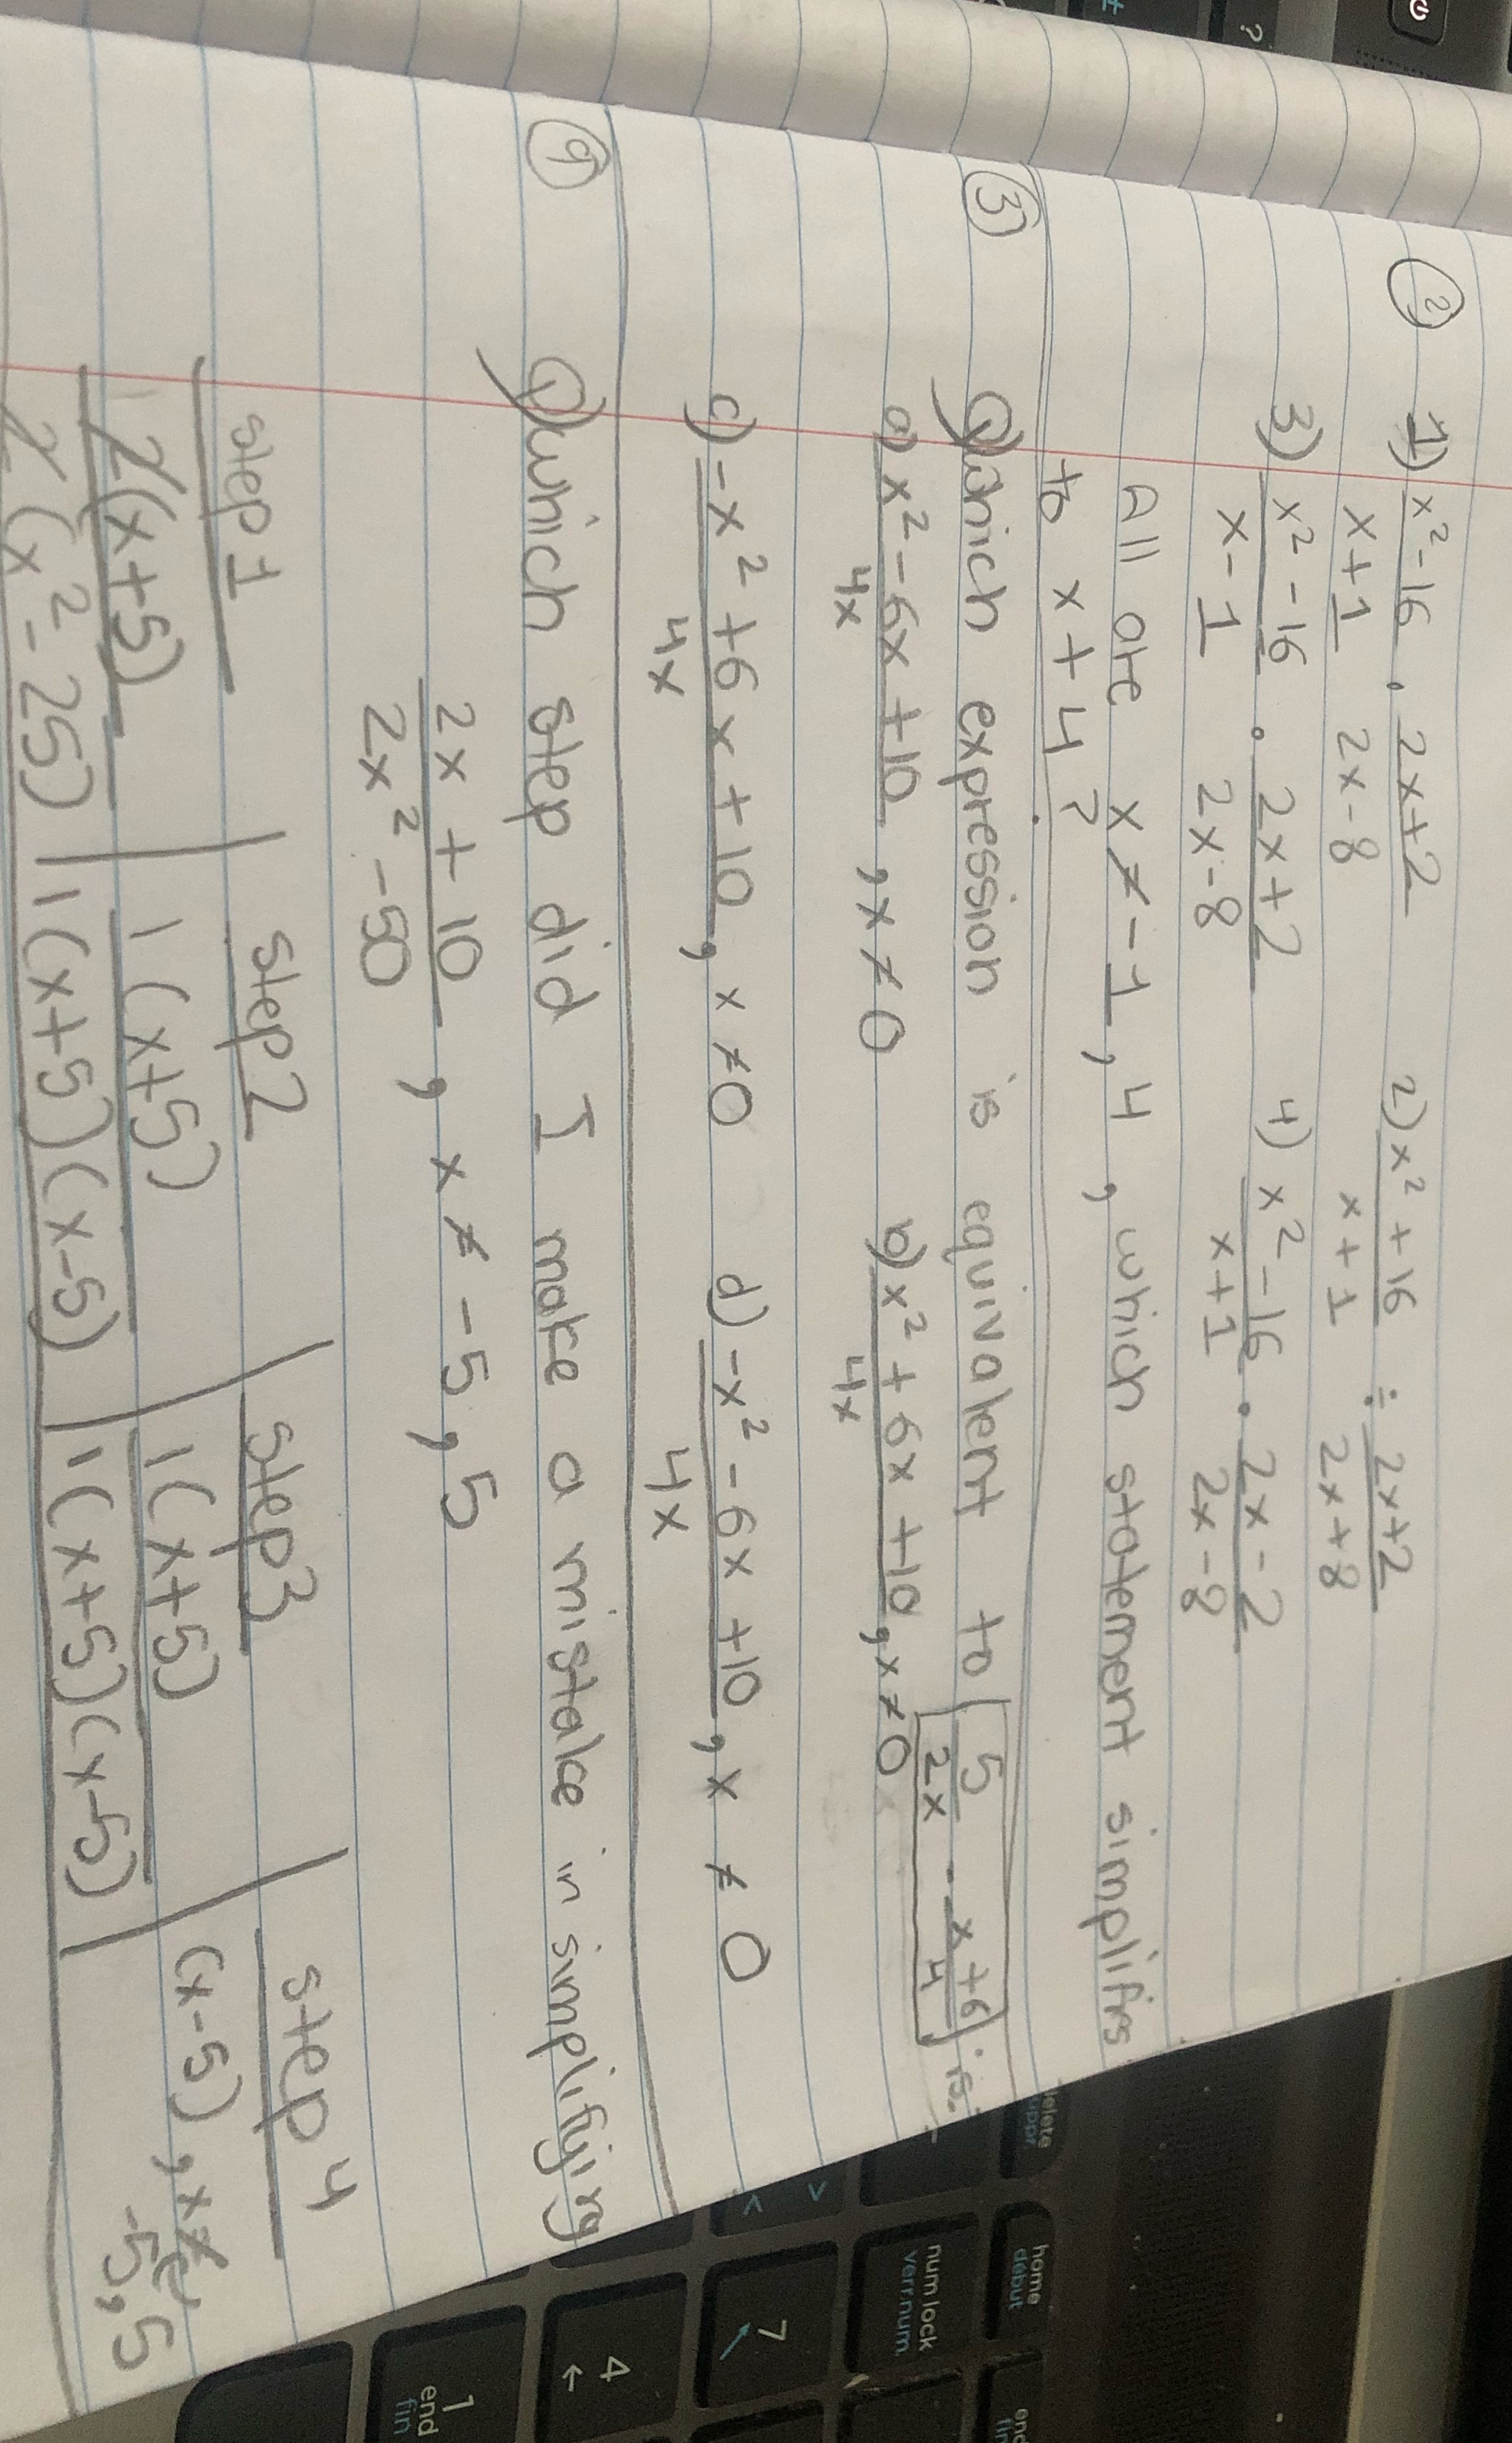 ② 1) x² - 16 / x + 1 · 2x + 2 / 2x - 8   2) x² + 16 / x + 1 ÷ 2x + 2 / 2x + 8
3) x² - 16 / x - 1 · 2x + 2 / 2x - 8   4) x² - 16 / x + 1 · 2x - 2 / 2x - 8
All are x ≠ -1, 4, which statement simplifies
to x + 4?
③ Q) Which expression is equivalent to 5 / 2x - x + 6 / 4 is.
a) x² - 6x + 10 / 4x , x ≠ 0   b) x² + 6x + 10 / 4x , x ≠ 0
c) -x² + 6x + 10 / 4x , x ≠ 0   d) -x² - 6x + 10 / 4x , x ≠ 0
④ Q) which step did I make a mistake in simplifying
2x + 10 / 2x² - 50 , x ≠ -5, 5
step 1 | step 2 | step 3 | step 4
1 2(x + 5) / 2 (x² - 25) | 1 (x + 5) / 1 (x + 5)(x - 5) | 1 (x + 5) / 1 (x + 5)(x - 5) | (x - 5), x ≠ -5, 5
delete
suppr
home
début
end
fin
num lock
verr num
7
4
←
1
end
fin
?
#